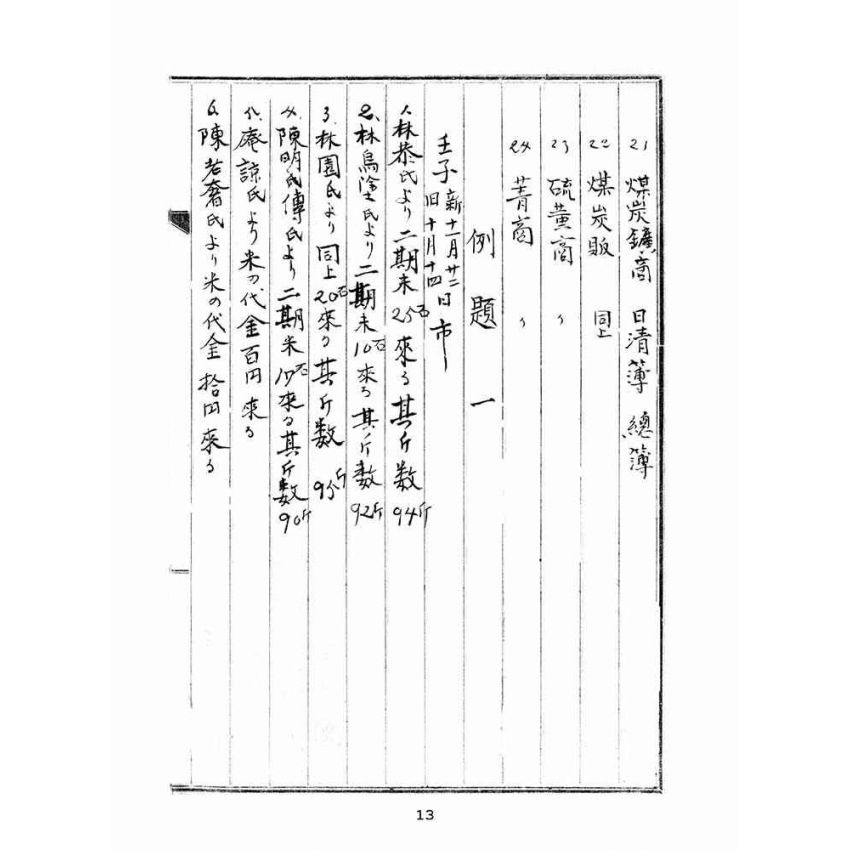 21 煤炭鑛商 日清簿 總簿
22 煤炭販 同上
23 硫黄商 〃
24 菁商 〃
例題一
壬子 新十一月廿二 旧十月十四 日市
1. 林恭氏より二期米25石來る其斤数 94斤
2. 林烏塗氏より二期米10石來る其斤数 92斤
3. 林園氏より同上20石來る其斤数 93斤
4. 陳明傳氏より二期米17石來る其斤数 90斤
5. 庵諒氏より米の代金百円來る
6. 陳若奢氏より米の代金拾円來る
13